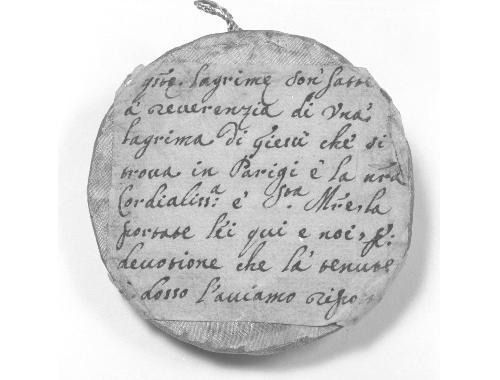 qste. lagrime son' fatte
a' reuerenzia di Vna'
lagrima di Giesù che' si
troua in Parigi è la nrã
Cordialiss:ª e' Sta Mr̃e, la
portate lei qui e noi, p̱:
deuotione che la' tenute
dosso l'auiamo